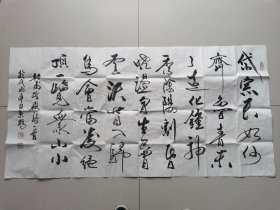 岱宗夫如何
齊魯青未
了造化鍾神
秀陰陽割昏
曉盪胸生層
雲決眥入歸
鳥會當凌絕
頂一覽眾山小
杜甫詩